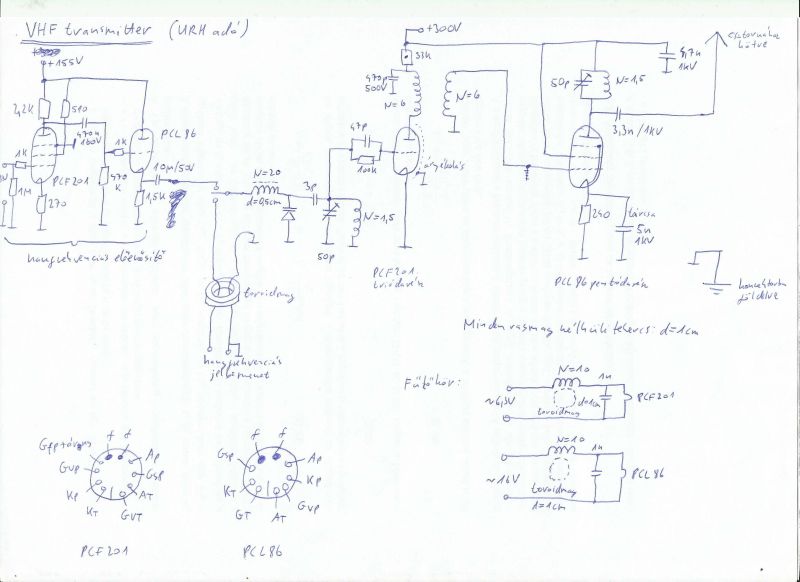 VHF transmitter (URH adó)
+155V
2,2K
510
470n
160V
1K
1K
PCL86
PCF201
1M
270
470
K
1,5K
10M/50V
hangfrekvenciás előerősítő
N=20
d=0,5cm
3p
50p
N=1,5
toroidmag
hangfrekvenciás
jelbemenet
+300V
33K
470p
500V
N=6
N=6
47p
100K
árnyékolás
PCF201
triódarész
50p
N=1,5
4,7n
1kV
3,3n/1kV
240
tárcsa
5n
1kV
PCL86 pentódarész
csatornához
kötve
földelve
Minden vasmag nélküli tekercs: d=1cm
Fűtőkör:
N=10
1n
~6,3V
d=1cm
toroidmag
PCF201
N=10
1n
~16V
toroidmag
d=1cm
PCL86
f f
Ap
Gsp
AT
GVT
KT
Kp
Gvp
PCF201
f f
Gsp
Ap
Kp
Gvp
AT
GT
KT
PCL86